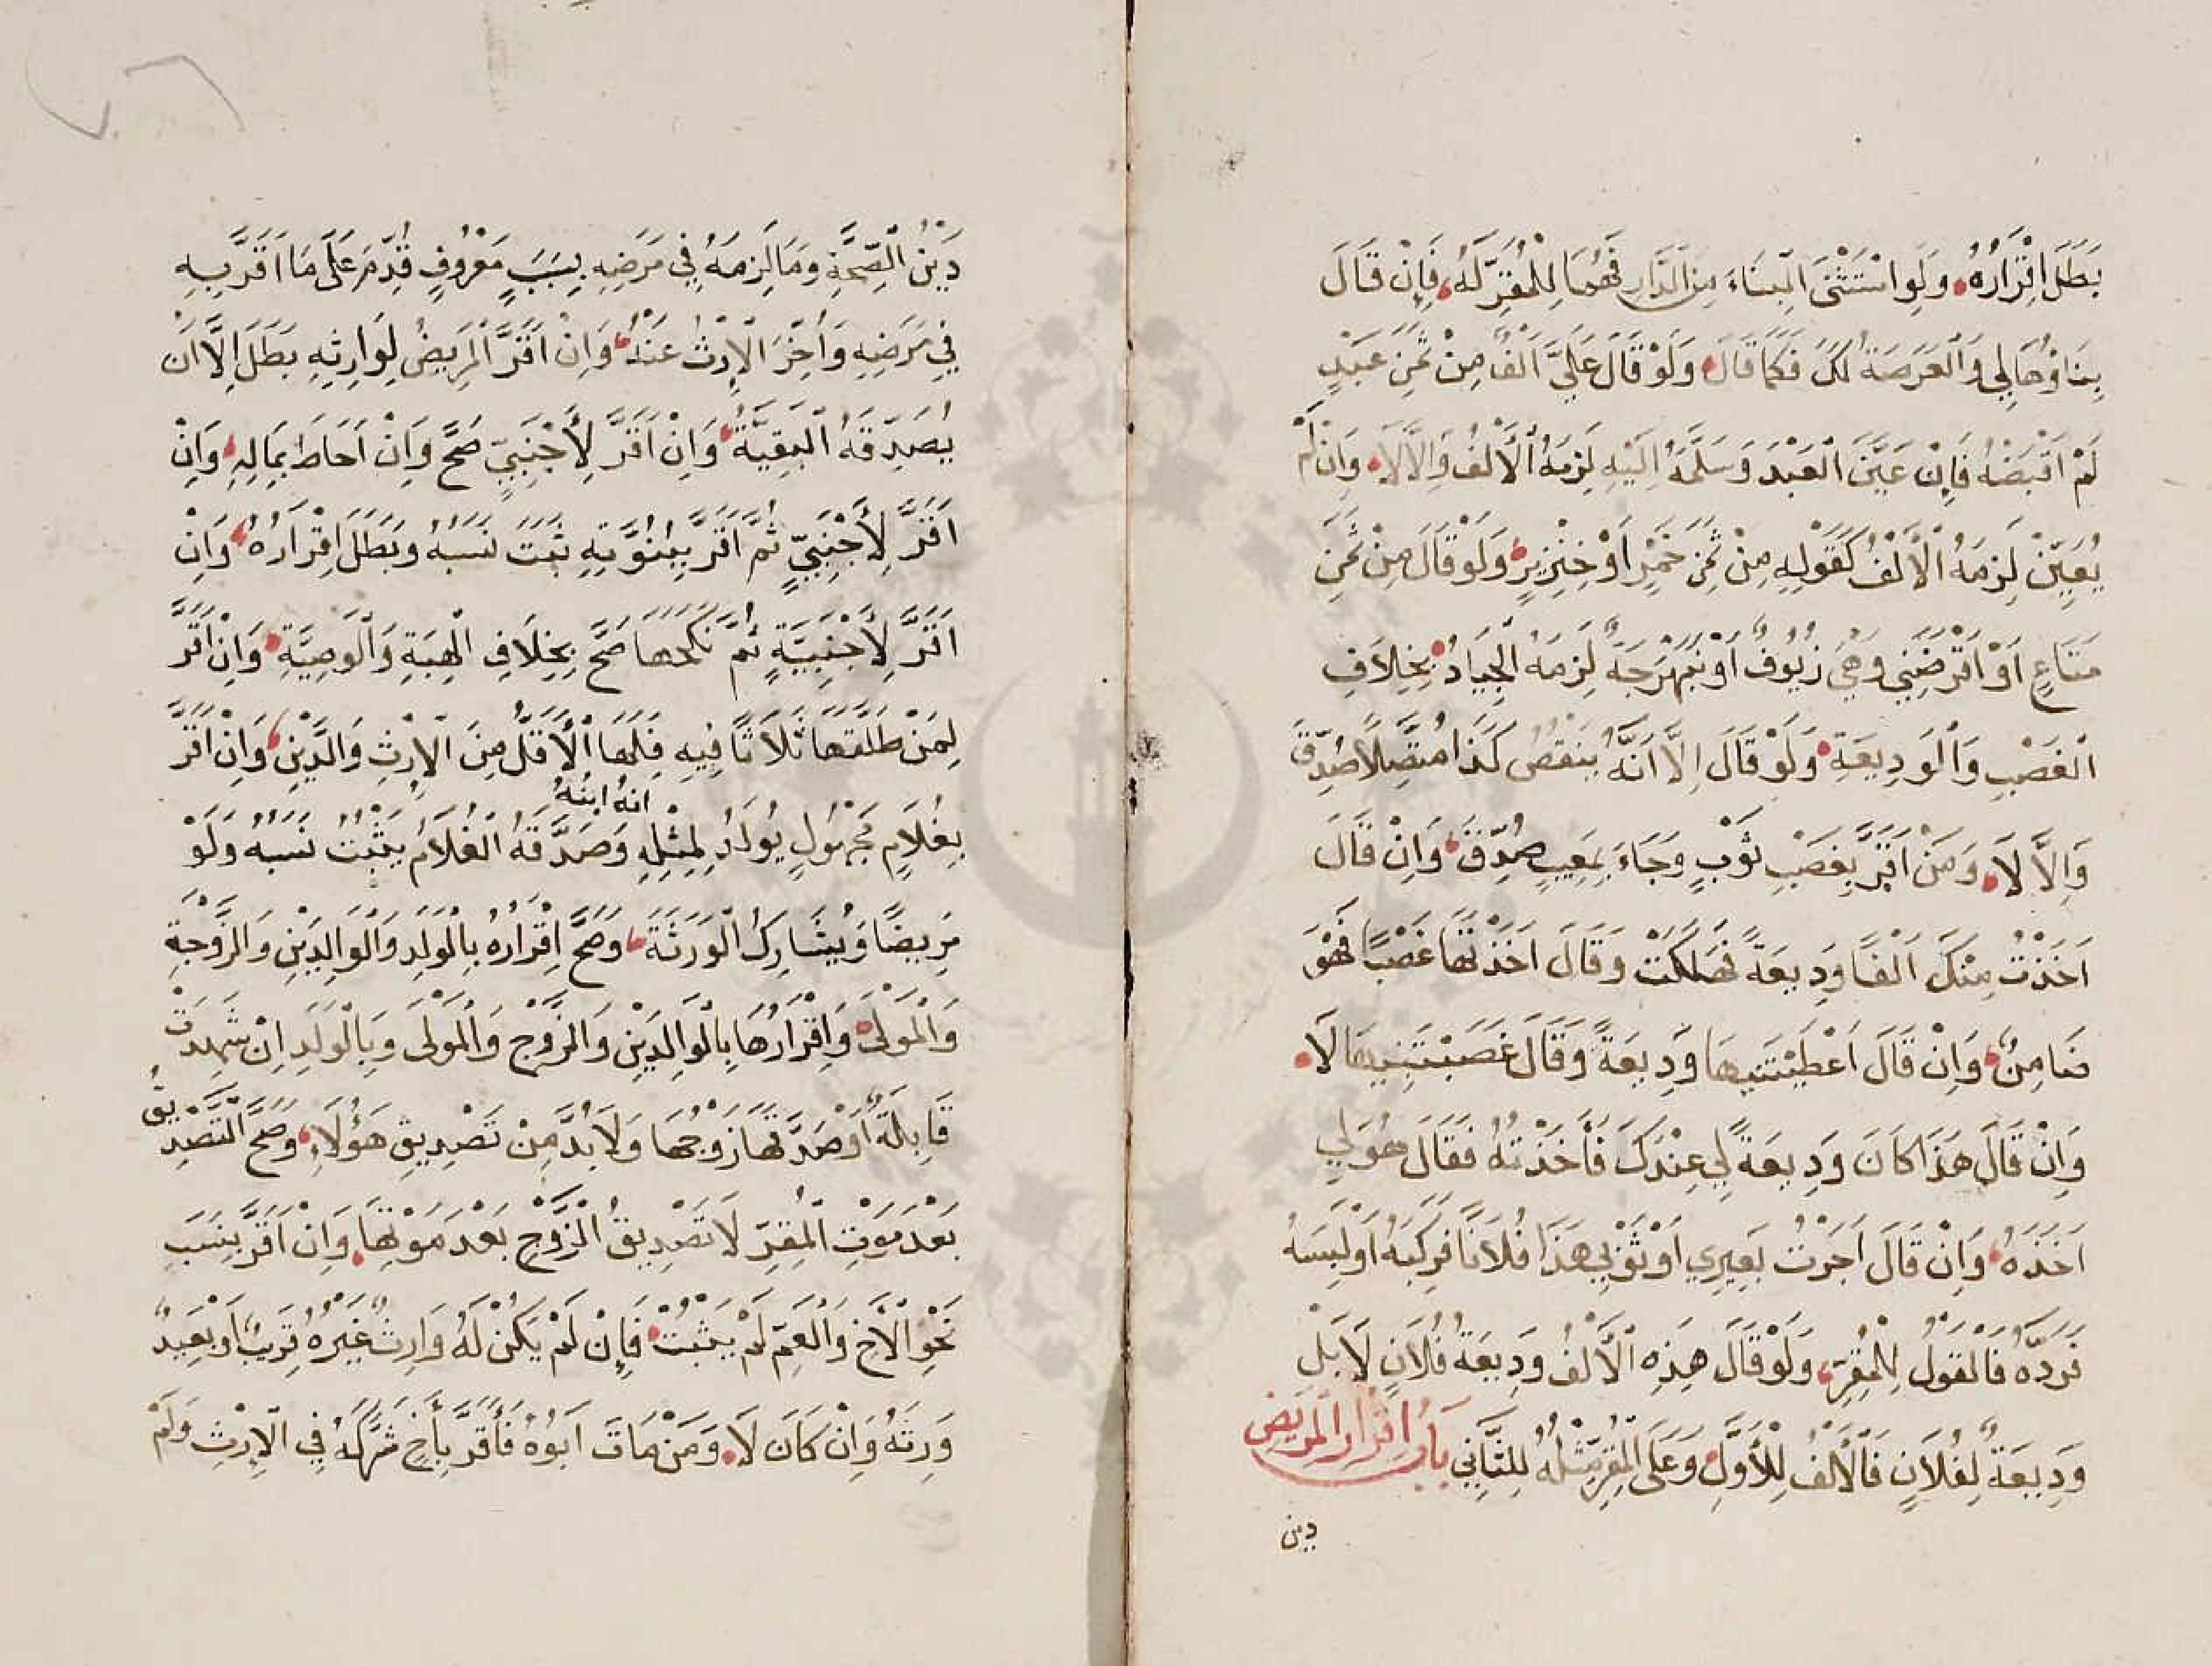 بَطَلَ اِقْرَارُهُ وَلَوِ اسْتَثْنَى الْبِنَاءَ مِنَ الدَّارِ فَهُمَا لِلْمُقَرِّ لَهُ فَإِنْ قَالَ
بِنَاؤُهَا لِي وَالْعَرْصَةُ لَكَ فَكَمَا قَالَ وَلَوْ قَالَ عَلَيَّ اَلْفٌ مِنْ ثَمَنِ عَبْدٍ
لَمْ اَقْبِضْهُ فَاِنْ عَيَّنَ الْعَبْدَ وَسَلَّمَهُ اِلَيْهِ لَزِمَهُ الْأَلْفُ وَاِلَّا لَا وَاِنْ لَمْ
يُعَيِّنْ لَزِمَهُ الْأَلْفُ كَقَوْلِهِ مِنْ ثَمَنِ خَمْرٍ اَوْ خِنْزِيرٍ وَلَوْ قَالَ مِنْ ثَمَنِ
مَتَاعٍ اَوْ اَقْرَضَنِي وَهِيَ زُيُوفٌ اَوْ نَبَهْرَجَةٌ لَزِمَهُ الْجِيَادُ بِخِلَافِ
الْغَصْبِ وَالْوَدِيعَةِ وَلَوْ قَالَ اِلَّا اَنَّهُ يَنْقُصُ كَذَا مُتَّصِلًا صُدِّقَ
وَاِلَّا لَا وَمَنْ اَقَرَّ بِغَصْبِ ثَوْبٍ وَجَاءَ بِمَعِيبٍ صُدِّقَ وَاِنْ قَالَ
اَخَذْتُ مِنْكَ اَلْفًا وَدِيعَةً فَهَلَكَتْ وَقَالَ اَخَذْتَهَا غَصْبًا فَهُوَ
ضَامِنٌ وَاِنْ قَالَ اَعْطَيْتَنِيهَا وَدِيعَةً وَقَالَ غَصَبْتَنِيهَا لَا
وَاِنْ قَالَ هَذَا كَانَ وَدِيعَةً لِي عِنْدَكَ فَأَخَذْتُهُ فَقَالَ هُوَ لِي
اَخَذَهُ وَاِنْ قَالَ اَجَرْتُ بَعِيرِي اَوْ ثَوْبِي هَذَا فُلَانًا فَرَكِبَهُ اَوْ لَبِسَهُ
فَرَدَّهُ فَالْقَوْلُ لِلْمُقِرِّ وَلَوْ قَالَ هَذِهِ الْأَلْفُ وَدِيعَةُ فُلَانٍ لَا بَلْ
وَدِيعَةٌ لِفُلَانٍ فَالْأَلْفُ لِلْأَوَّلِ وَعَلَى الْمُقِرِّ مِثْلُهُ لِلثَّانِي بَابُ اِقْرَارِ الْمَرِيضِ
دين
دَيْنُ الصِّحَّةِ وَمَا لَزِمَهُ فِي مَرَضِهِ بِسَبَبٍ مَعْرُوفٍ قُدِّمَ عَلَى مَا اَقَرَّ بِهِ
فِي مَرَضِهِ وَاُخِّرَ الْاِرْثُ عَنْهُ وَاِنْ اَقَرَّ الْمَرِيضُ لِوَارِثِهِ بَطَلَ اِلَّا اَنْ
يُصَدِّقَهُ الْبَقِيَّةُ وَاِنْ اَقَرَّ لِأَجْنَبِيٍّ صَحَّ وَاِنْ اَحَاطَ بِمَالِهِ وَاِنْ
اَقَرَّ لِأَجْنَبِيٍّ ثُمَّ اَقَرَّ بِبُنُوَّتِهِ ثَبَتَ نَسَبُهُ وَبَطَلَ اِقْرَارُهُ وَاِنْ
اَقَرَّ لِأَجْنَبِيَّةٍ ثُمَّ نَكَحَهَا صَحَّ بِخِلَافِ الْهِبَةِ وَالْوَصِيَّةِ وَاِنْ اَقَرَّ
لِمَنْ طَلَّقَهَا ثَلَاثًا فِيهِ فَلَهَا الْأَقَلُّ مِنَ الْاِرْثِ وَالدَّيْنِ وَاِنْ اَقَرَّ
انهُ ابنُهُ
بِغُلَامٍ مَجْهُولٍ يُولَدُ لِمِثْلِهِ وَصَدَّقَهُ الْغُلَامُ يَثْبُتُ نَسَبُهُ وَلَوْ
مَرِيضًا وَيُشَارِكُ الْوَرَثَةَ وَصَحَّ اِقْرَارُهُ بِالْوَلَدِ وَالْوَالِدَيْنِ وَالزَّوْجَةِ
وَالْمَوْلَى وَاِقْرَارُهَا بِالْوَالِدَيْنِ وَالزَّوْجِ وَالْمَوْلَى وَبِالْوَلَدِ اِنْ شَهِدَتْ
قَابِلَةٌ اَوْ صَدَّقَهَا زَوْجُهَا وَلَا بُدَّ مِنْ تَصْدِيقِ هَؤُلَاءِ وَصَحَّ التَّصْدِيقُ
بَعْدَ مَوْتِ الْمُقِرِّ لَا تَصْدِيقُ الزَّوْجِ بَعْدَ مَوْتِهَا وَاِنْ اَقَرَّ بِنَسَبِ
نَحْوِ الْأَخِ وَالْعَمِّ لَمْ يَثْبُتْ فَإِنْ لَمْ يَكُنْ لَهُ وَارِثٌ غَيْرُهُ قَرِيبٌ اَوْ بَعِيدٌ
وَرِثَهُ وَاِنْ كَانَ لَا وَمَنْ مَاتَ اَبُوهُ فَأَقَرَّ بِأَخٍ شَرِكَهُ فِي الْاِرْثِ وَلَمْ